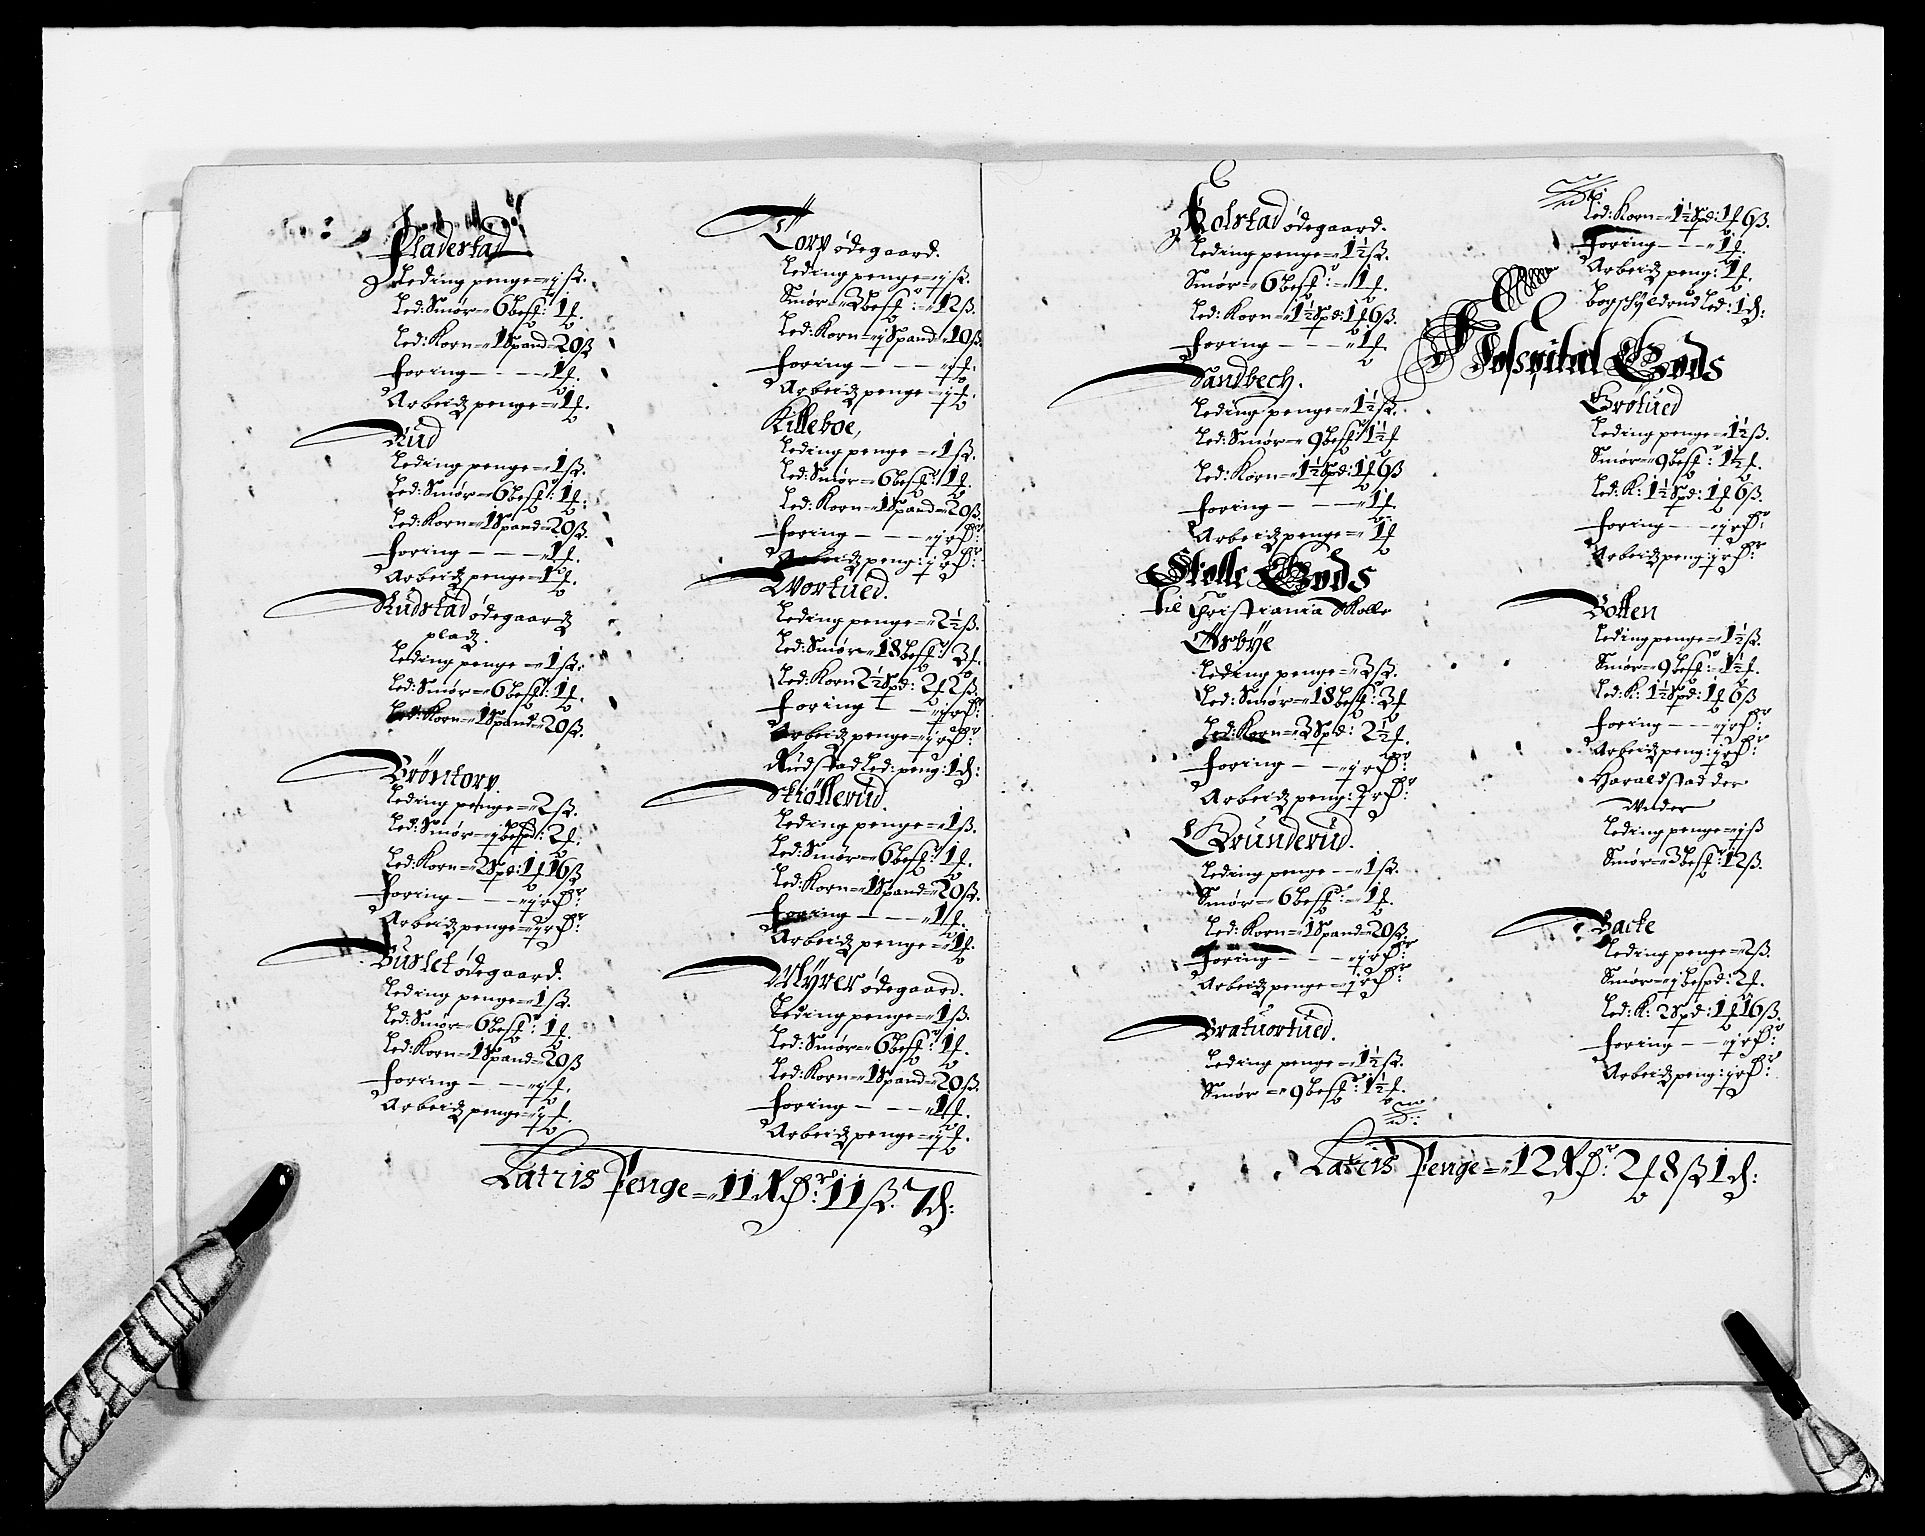 Fladerstad
Leding penge = j ß.
Led: Smør = 6 besk: 1 f.
Led: Korn = 1 Spand = 20 ß
foring - - - 1 f.
Arbeidz penge = 1 f.
Rud
Leding penge = 1 ß.
Led: Smør = 6 besk: 1 f.
Led: Korn = 1 Spand = 20 ß.
foring - - - 1 f.
Arbeidz penge = 1 f.
Rudstad ødegaardz
pladz.
Leding penge = 1 ß.
Led: Smør = 6 besk: 1 f.
Led: Korn = 1 Spand = 20 ß.
Brøntorp
Leding penge = 2 ß.
Led: Smør = j bespd: 2 f.
Led: Korn = 2 Spd: 1 f 16 ß
foring - - - j rdr
Arbeidz penge = j rdr
Burlet ødegaard.
Leding penge = 1 ß.
Led: Smør = 6 besk: 1 f.
Led: Korn = 1 Spand = 20 ß
foring - - - j f.
Arbeidz penge = j f.
Torp ødegaard.
Leding penge = j ß.
Smør = 3 besk: = 12 ß.
Led: Korn = j Spand = 10 ß
foring - - - j f.
Arbeidz penge = j f.
Killeboe,
Leding penge = 1 ß.
Led: Smør = 6 besk: 1 f.
Led: Korn = 1 Spand = 20 ß.
foring - - - j rdr:
Arbeidz peng: j rdr:
Wortued.
Leding penge = 2½ ß.
Led: Smør = 18 besk: 3 f.
Led: Korn 2½ Spd: 2 f 2 ß.
foring - - j rdr:
Arbeidz penge = j rdr:
Rudstad Led: peng: 1 d:
Skiøllerud.
Leding penge = 1 ß.
Led: Smør = 6 besk: 1 f.
Led: Korn = 1 Spand = 20 ß.
foring - - - 1 f.
Arbeidz penge = 1 f.
Myrer ødegaard.
Leding penge = 1 ß.
Led: Smør = 6 besk: 1 f.
Led: Korn = 1 Spand = 20 ß.
foring - - - 1 f.
Arbeidz penge = j f.
Latris Penge = 11 Rdr: 11 ß. 7 d:
Kolstad ødegaard.
Leding penge = 1½ ß.
Smør = 6 besk: = 1 f.
Led: Korn = 1½ Spd: 1 f 6 ß.
foring - - - 1 f.
Sandbech.
Leding penge = 1½ ß.
Led: Smør = 9 besk: 1½ f
Led: Korn = 1½ Spd: 1 f 6 ß
foring - - - 1 f.
Arbeidz penge = 1 f
Skolle Gods
til Christiania Skolle
Ørbye
Leding penge = 3 ß.
Led: Smør = 18 besk: 3 f
Led: Korn = 3 Spd: 2½ f.
foring - - j rdr:
Arbeidz peng: j rdr:
Brunderud.
Leding penge - - 1 ß.
Smør = 6 besk: = 1 f.
Led: Korn = 1 Spand = 20 ß.
foring - - - j rdr:
Arbeidz penge = j rdr:
Bratuortued.
Leding penge = 1½ ß.
Smør = 9 besk: 1½ f.
Led: Korn = 1½ Spd: 1 f 6 ß.
foring - - - 1 f.
Arbeidz peng: 1 f.
Led: 1 d:
Hospital Gods
Grotued
Leding penge = 1½ ß.
Smør = 9 besk: 1½ f.
Led: K: 1½ Spd: 1 f 6 ß.
foring - - j rdr:
Arbeidz peng: j rdr:
Botten
Leding penge = 1½ ß.
Smør = 9 besk: = 1½ f.
Led: K: 1½ Spd: 1 f 6 ß
foring - - - j rdr:
Arbeidz peng: j rdr:
Haraldstad der
under
Leding penge = j ß
Smør = 3 besk: 12 ß.
Backe
Leding penge = 2 ß.
Smør = j bespd: 2 f.
Led: K: 2 Spd: 1 f 16 ß.
foring - - j rdr:
Arbeidz peng: j rdr:
Latris Penge = 12 Rdr: 2 f 8 ß 1 d: